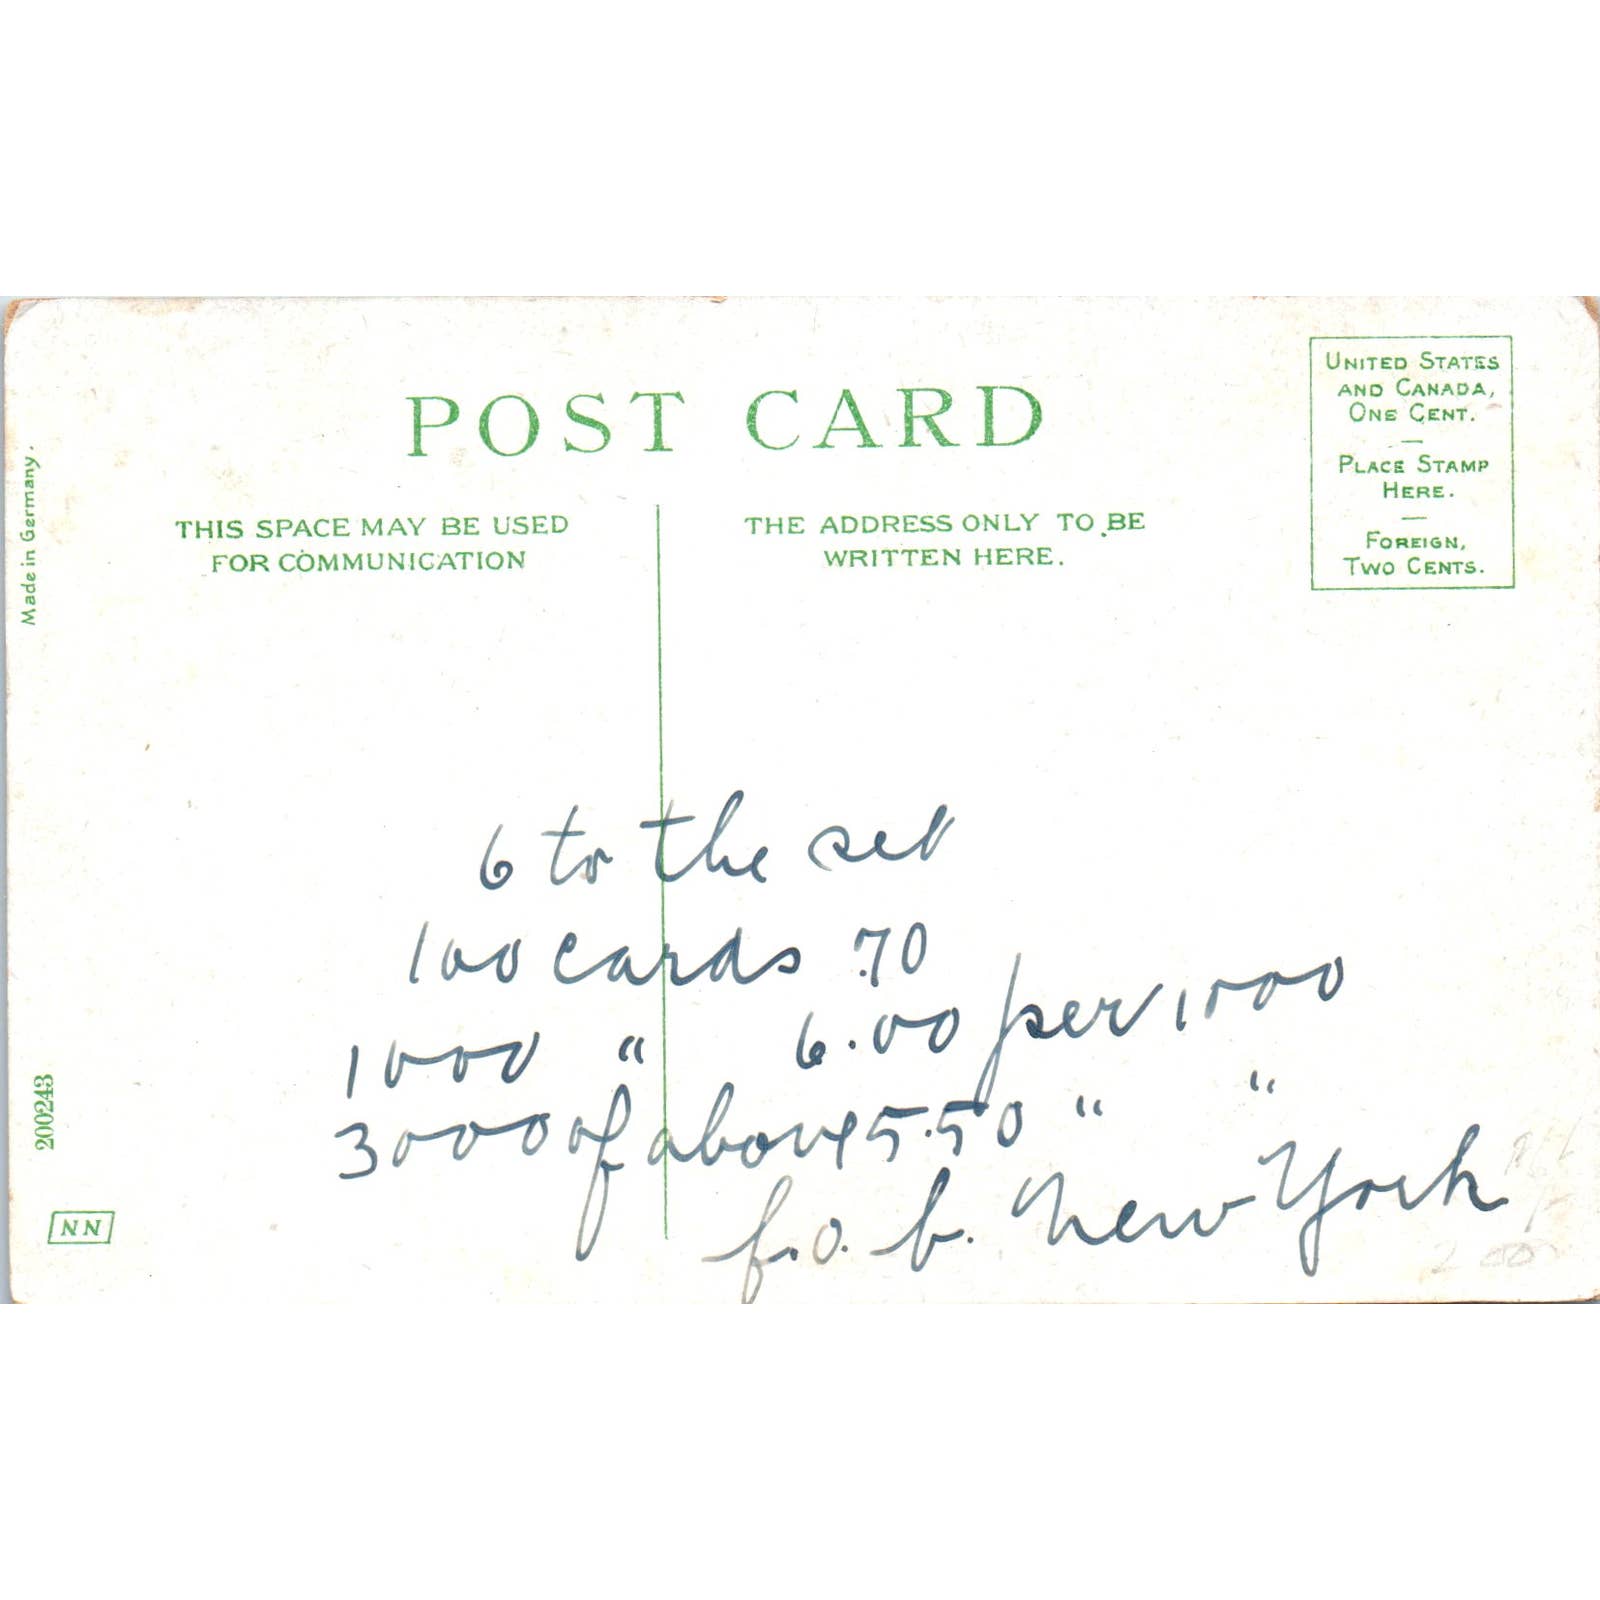 POST CARD
UNITED STATES
AND CANADA,
ONE CENT.
PLACE STAMP
HERE.
FOREIGN,
TWO CENTS.
Made in Germany.
THIS SPACE MAY BE USED
FOR COMMUNICATION
THE ADDRESS ONLY TO BE
WRITTEN HERE.
6 to the set
100 cards .70
1000 " 6.00 per 1000
3000 of above 5.50 " "
f.o.b. New York
200243
NN
200